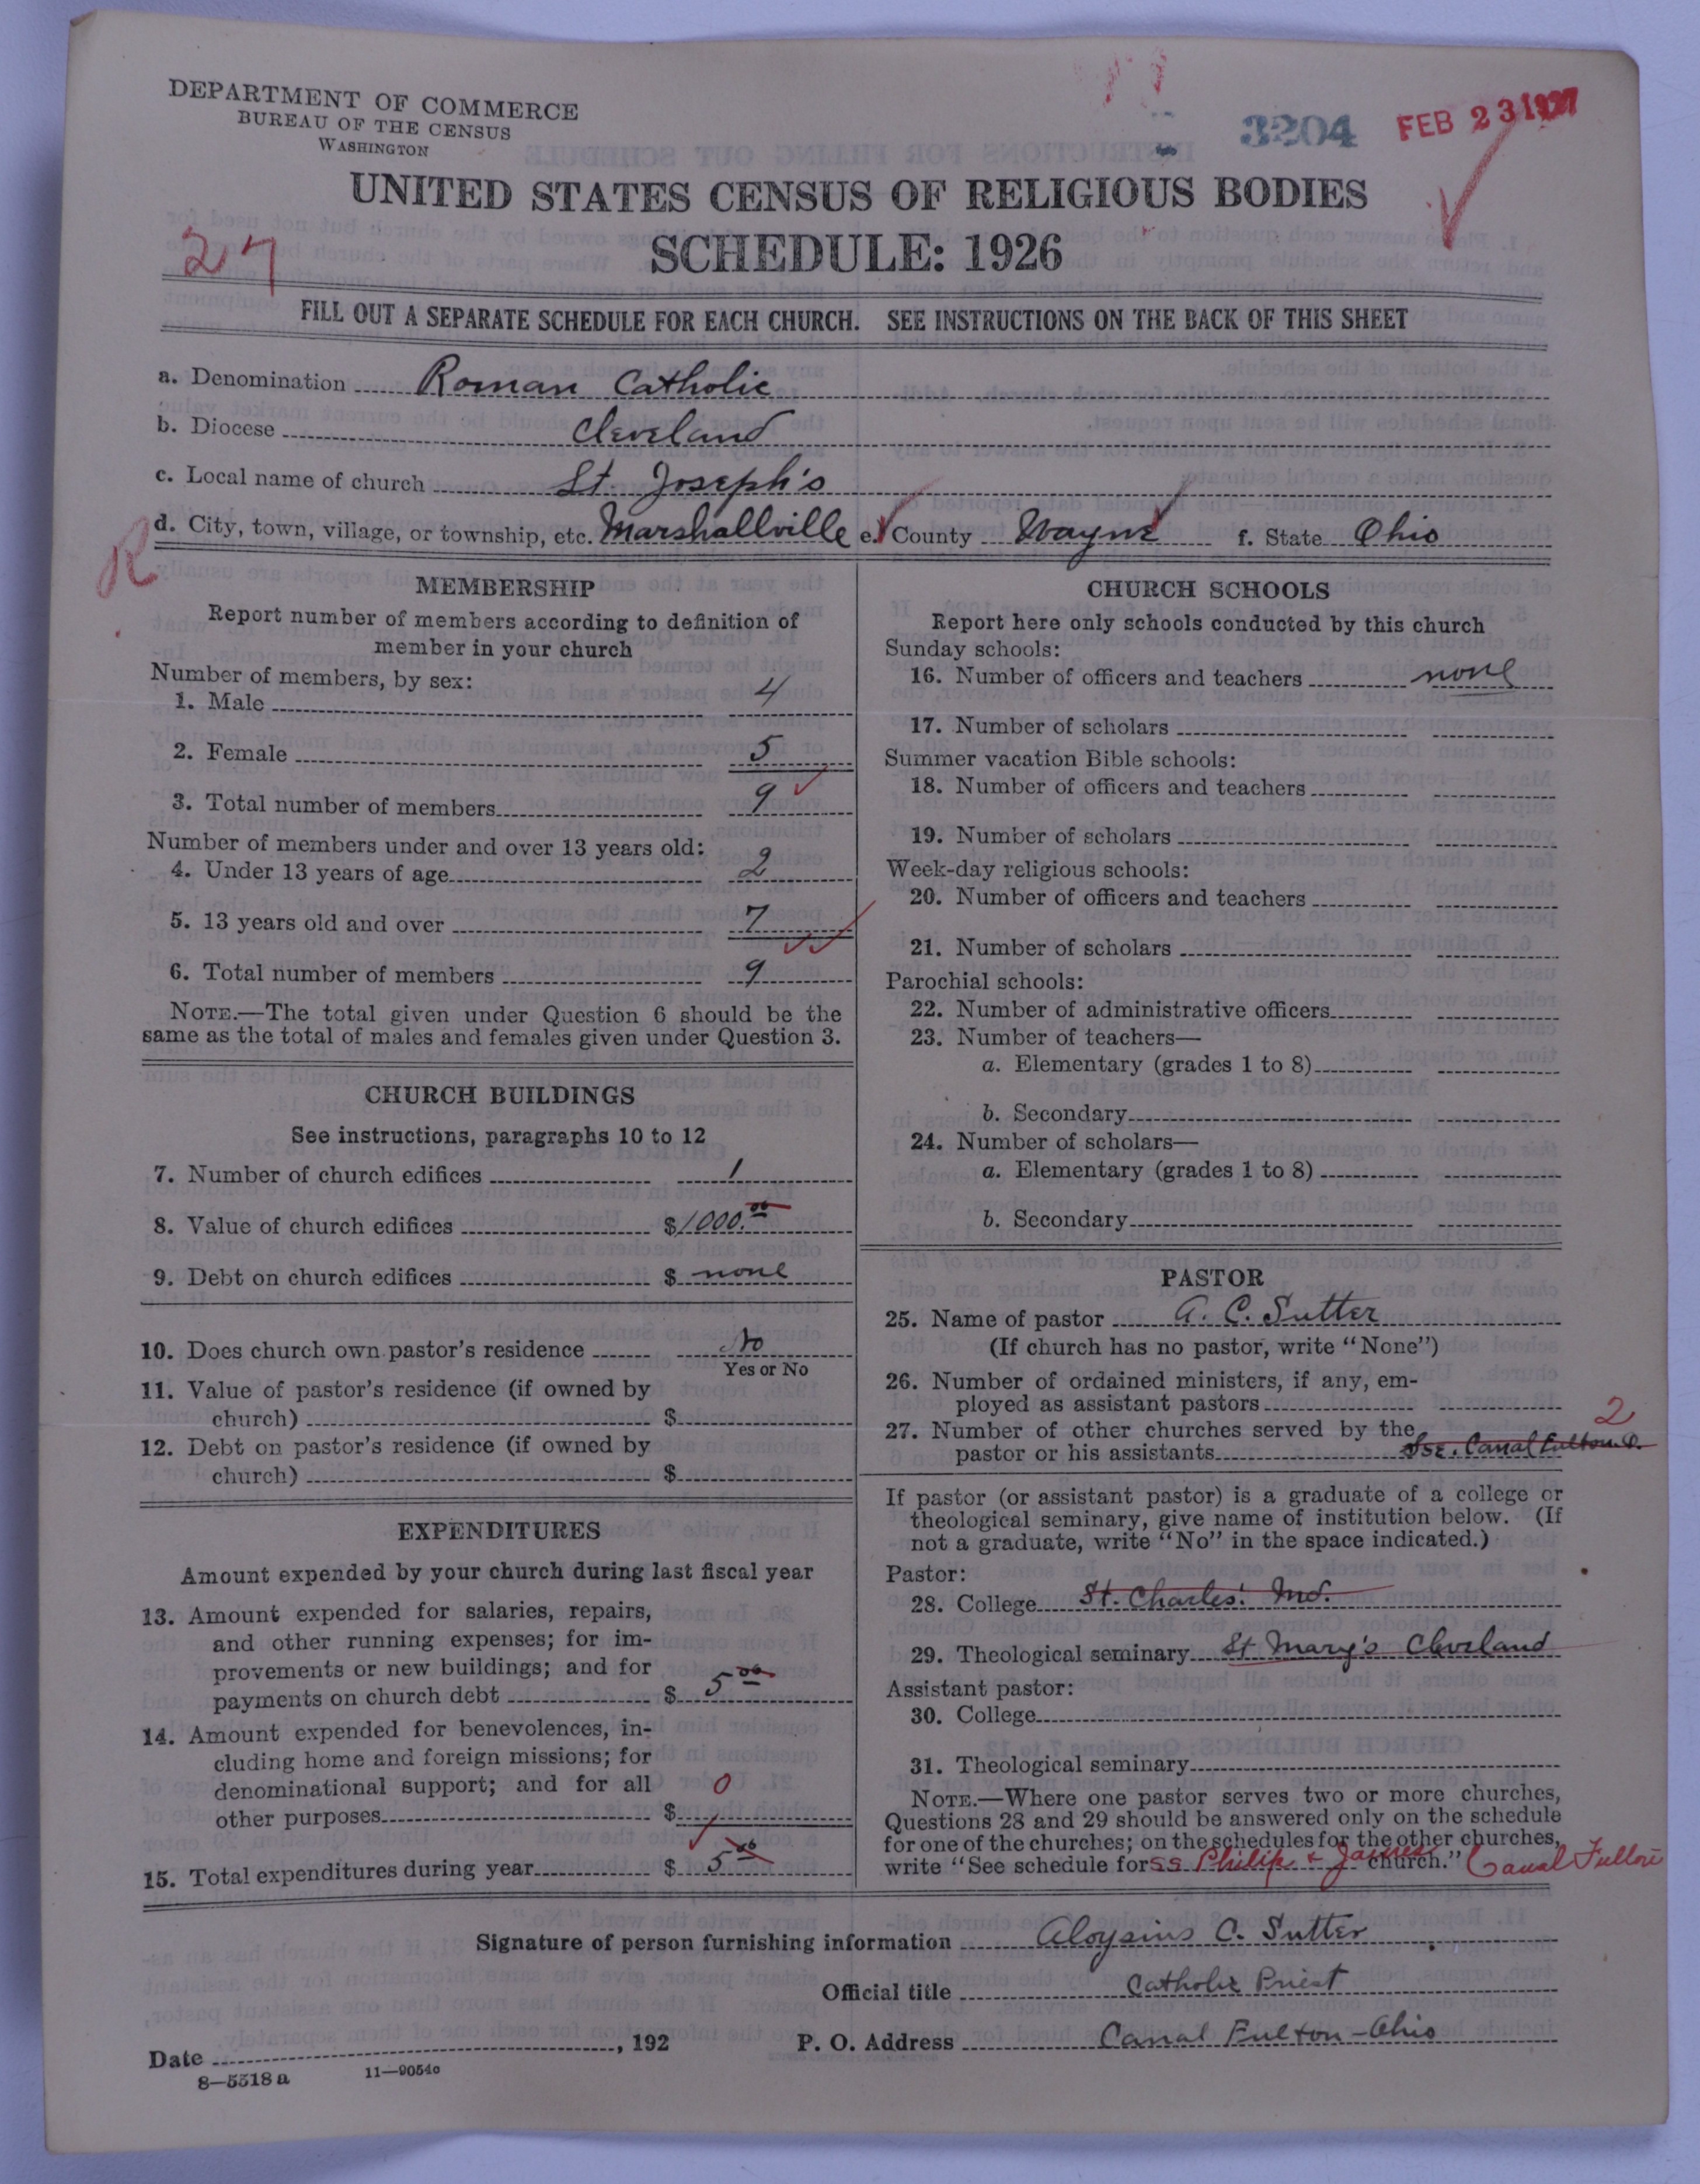 DEPARTMENT OF COMMERCE
BUREAU OF THE CENSUS
WASHINGTON
3204 FEB 23 1927
UNITED STATES CENSUS OF RELIGIOUS BODIES
SCHEDULE: 1926
27
FILL OUT A SEPARATE SCHEDULE FOR EACH CHURCH. SEE INSTRUCTIONS ON THE BACK OF THIS SHEET
a. Denomination Roman Catholic
b. Diocese Cleveland
c. Local name of church St Joseph's
d. City, town, village, or township, etc. Marshallville e. County Wayne f. State Ohio
R
MEMBERSHIP
Report number of members according to definition of
member in your church
Number of members, by sex:
1. Male 4
2. Female 5
3. Total number of members 9
Number of members under and over 13 years old:
4. Under 13 years of age 2
5. 13 years old and over 7
6. Total number of members 9
NOTE.—The total given under Question 6 should be the
same as the total of males and females given under Question 3.
CHURCH BUILDINGS
See instructions, paragraphs 10 to 12
7. Number of church edifices 1
8. Value of church edifices $1000.00
9. Debt on church edifices $ none
10. Does church own pastor's residence No
Yes or No
11. Value of pastor's residence (if owned by
church) $
12. Debt on pastor's residence (if owned by
church) $
EXPENDITURES
Amount expended by your church during last fiscal year
13. Amount expended for salaries, repairs,
and other running expenses; for im-
provements or new buildings; and for
payments on church debt $ 5 00
14. Amount expended for benevolences, in-
cluding home and foreign missions; for
denominational support; and for all 0
other purposes $
15. Total expenditures during year $ 5 00
CHURCH SCHOOLS
Report here only schools conducted by this church
Sunday schools:
16. Number of officers and teachers none
17. Number of scholars
Summer vacation Bible schools:
18. Number of officers and teachers
19. Number of scholars
Week-day religious schools:
20. Number of officers and teachers
21. Number of scholars
Parochial schools:
22. Number of administrative officers
23. Number of teachers—
a. Elementary (grades 1 to 8)
b. Secondary
24. Number of scholars—
a. Elementary (grades 1 to 8)
b. Secondary
PASTOR
25. Name of pastor A. C. Sutter
(If church has no pastor, write "None")
26. Number of ordained ministers, if any, em-
ployed as assistant pastors
27. Number of other churches served by the 2
pastor or his assistants Canal Fulton O.
If pastor (or assistant pastor) is a graduate of a college or
theological seminary, give name of institution below. (If
not a graduate, write "No" in the space indicated.)
Pastor:
28. College St. Charles. Md.
29. Theological seminary St Mary's Cleveland
Assistant pastor:
30. College
31. Theological seminary
NOTE.—Where one pastor serves two or more churches,
Questions 28 and 29 should be answered only on the schedule
for one of the churches; on the schedules for the other churches,
write "See schedule for SS Philip & James church." Canal Fulton
Signature of person furnishing information Aloysius C. Sutter
Official title Catholic Priest
Date , 192 P. O. Address Canal Fulton-Ohio
8—5518 a 11—9054c